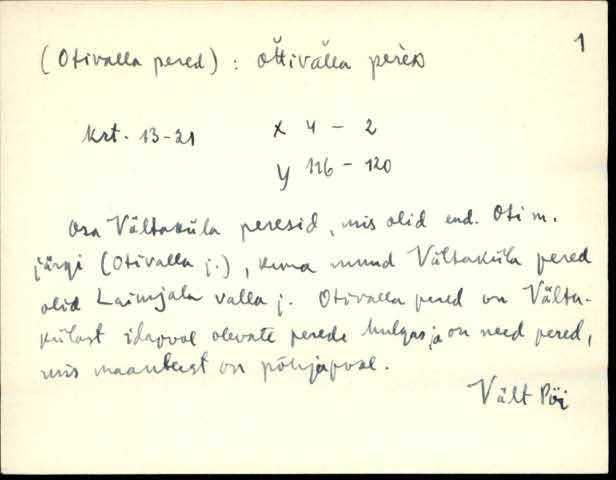 1
(Otivalla pered) : ŏt̆tivălla pereᴅ
krt. 13-21    x 4 – 2
y 116 – 120
Osa Vältaküla peresid, mis olid end. Oti m.
järgi (Otivalla j.), kuna muud Vältaküla pered
olid Laimjala valla j. Otivalla pered on Välta-
külast idapool olevate perede hulgas ja on need pered,
mis maanteest on põhjapool.
Vält Pöi